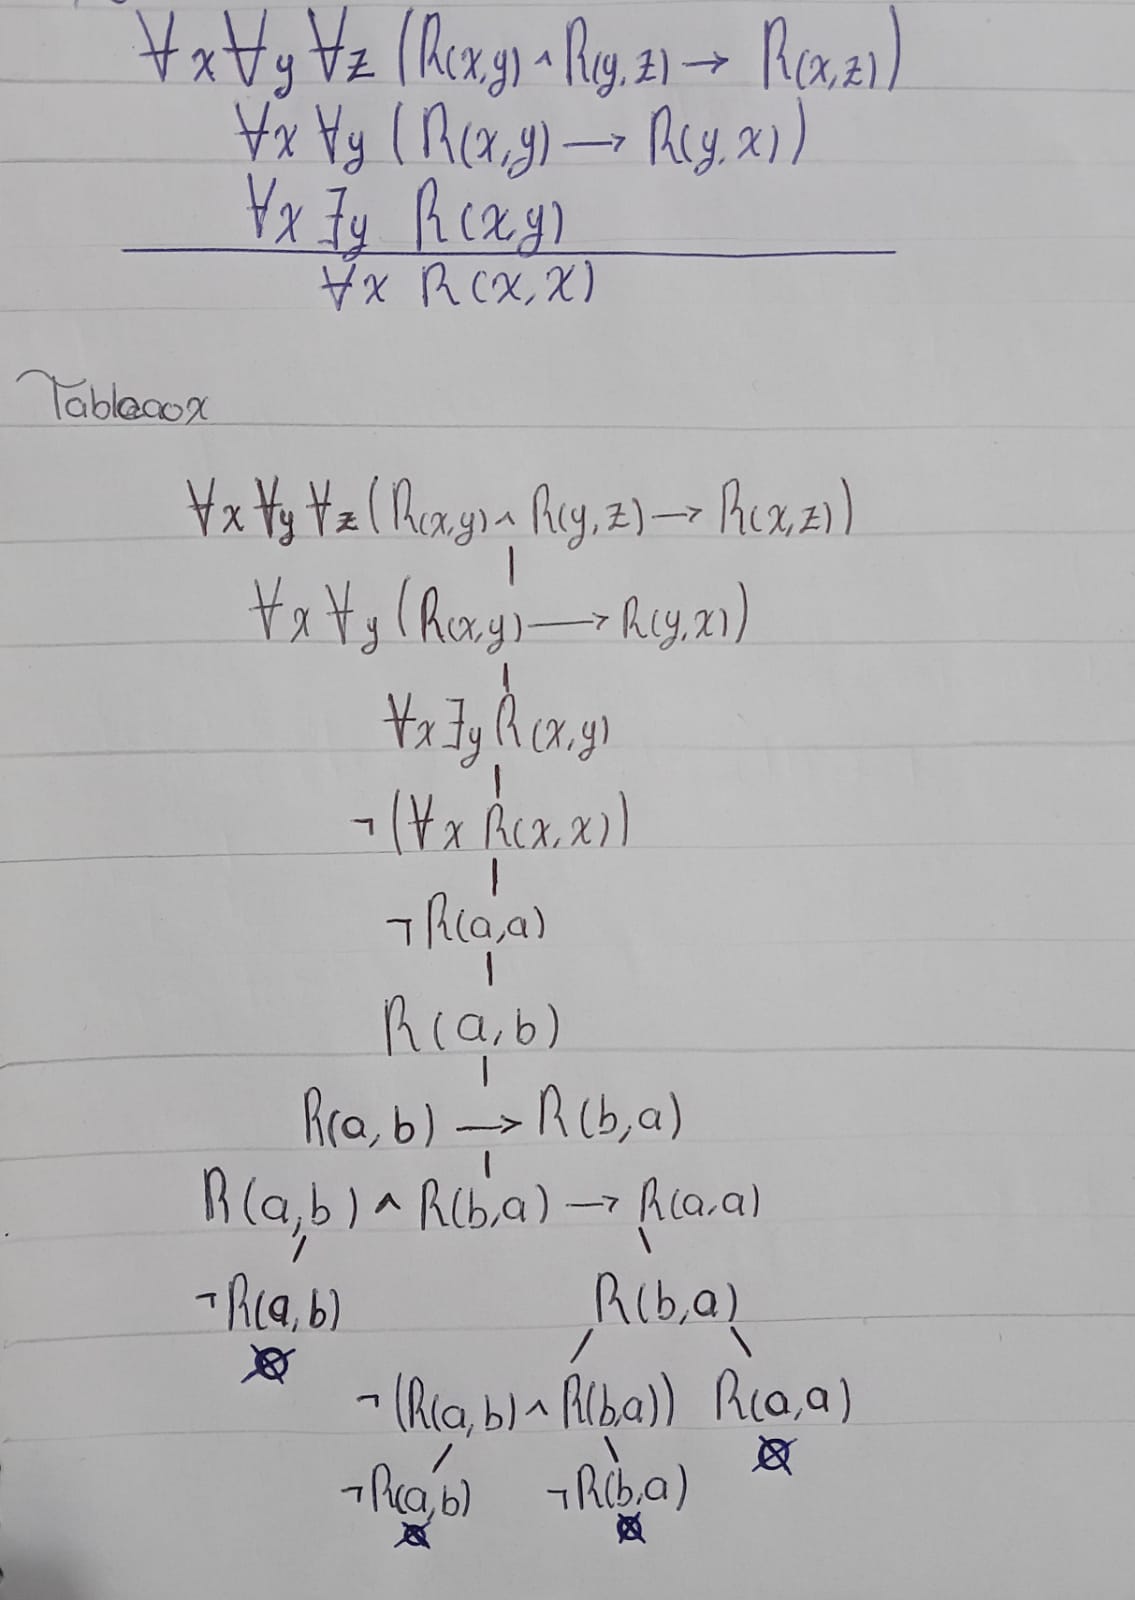 ∀x∀y∀z (R(x,y) ∧ R(y,z) → R(x,z))
∀x ∀y (R(x,y) → R(y,x))
∀x ∃y R(x,y)
∀x R(x,x)
Tableaox
∀x ∀y ∀z (R(x,y) ∧ R(y,z) → R(x,z))
∀x ∀y (R(x,y) → R(y,x))
∀x ∃y R(x,y)
¬(∀x R(x,x))
¬R(a,a)
R(a,b)
R(a,b) → R(b,a)
R(a,b) ∧ R(b,a) → R(a,a)
¬R(a,b) R(b,a)
¬(R(a,b) ∧ R(b,a)) R(a,a)
¬R(a,b) ¬R(b,a)